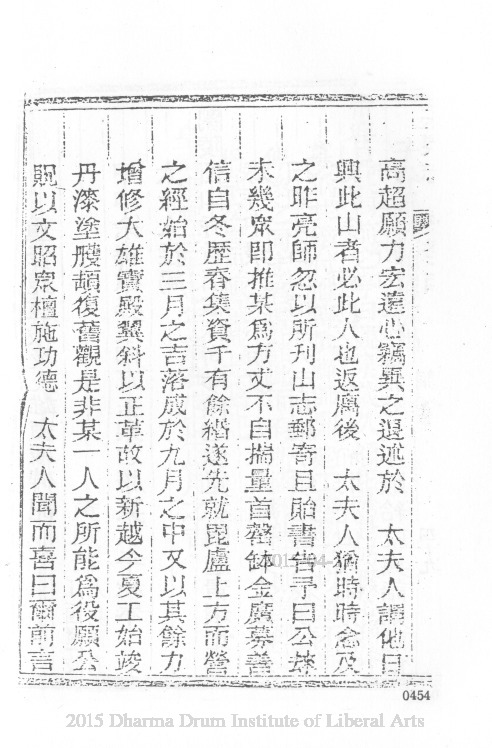 高超願力宏遠心竊異之退述於　太夫人謂他日
興此山者必此人也返廣後　太夫人猶時時念及
之昨亮師忽以所刊山志郵寄且貽書告予曰公發
未幾眾即推某為方丈不自揣量首罄鉢金廣募善
信自冬歷春集貲千有餘緡遂先就毘盧上方而營
之經始於三月之吉落成於九月之中又以其餘力
增修大雄寶殿翼斜以正革故以新越今夏工始竣
丹漆塗雘頓復舊觀是非某一人之所能為役願公
貺以文昭眾檀施功德　太夫人聞而喜曰爾前言
0454
2015 Dharma Drum Institute of Liberal Arts